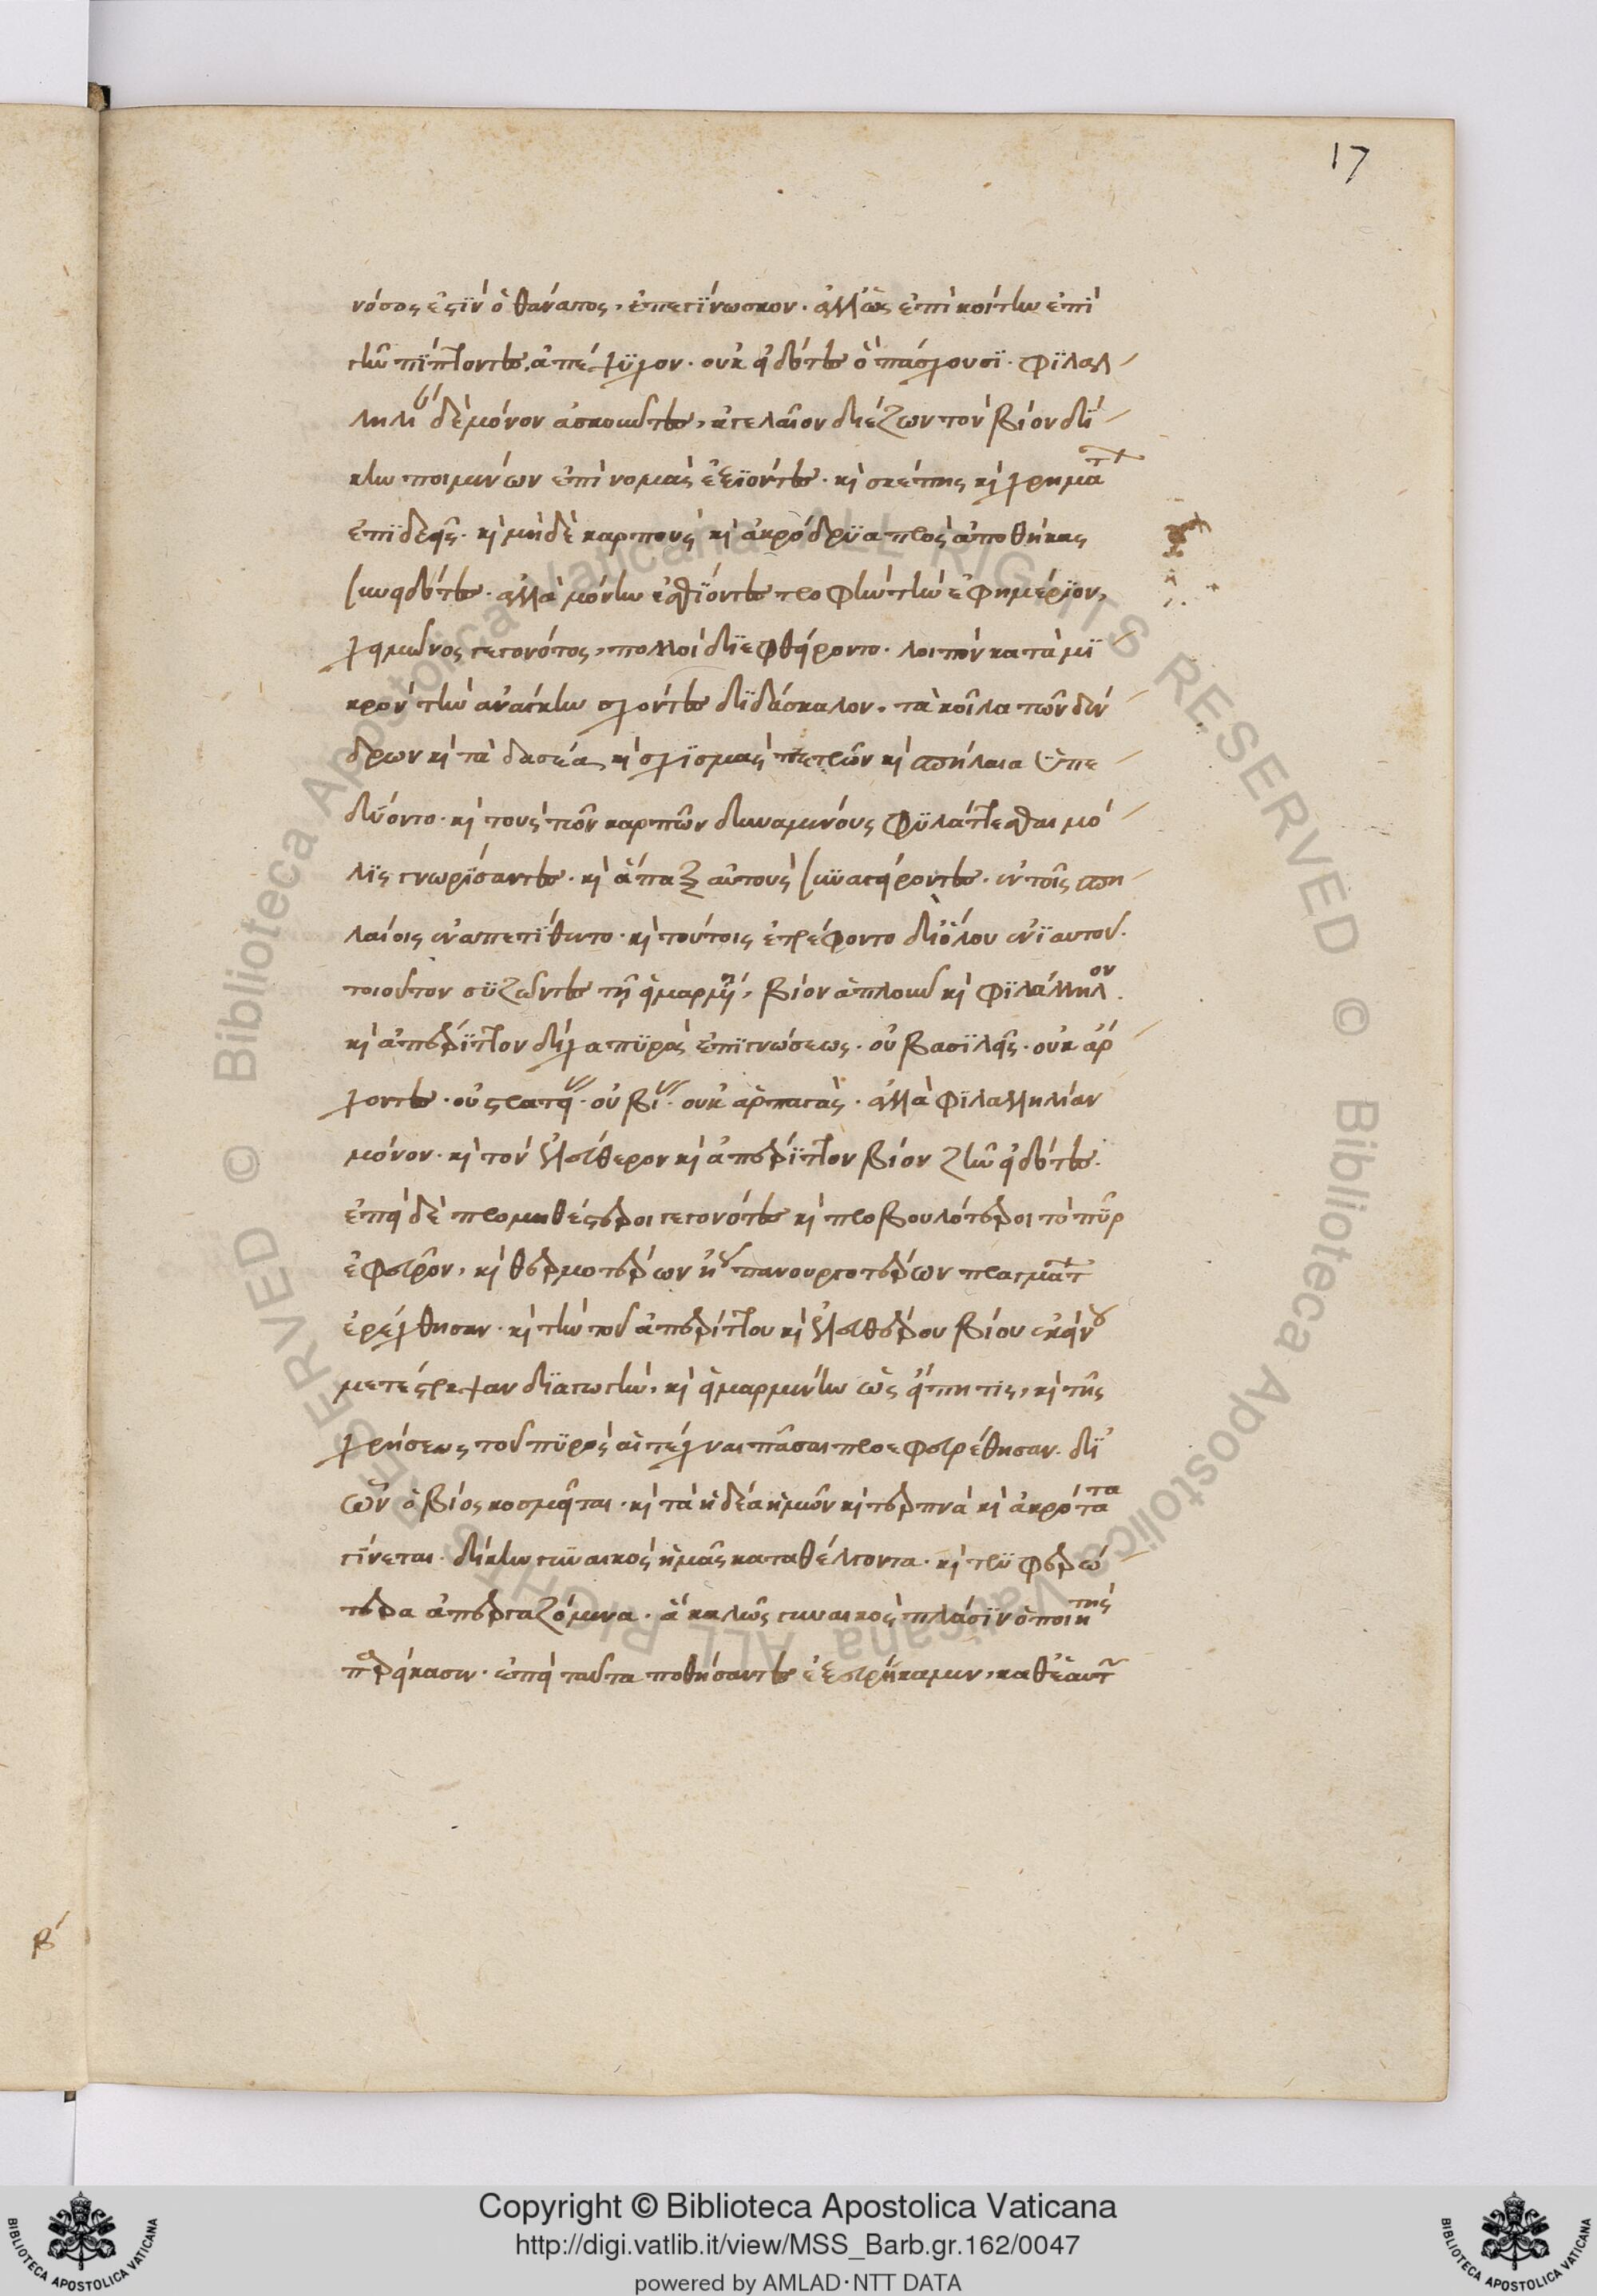 17
νόσος ἐστὶν ὁ θάνατος, ἐπεγίνωσκον. ἀλλ' ὡς ἐπὶ κοίτην ἐπὶ
γῆν πίπτοντες, ἀπέψυχον. οὐκ εἰδότες ὃ πάσχουσι. φιλαλ
ληλίαν δὲ μόνον ἀσκοῦντες, ἀγελαῖον διέζων τὸν βίον δί
κην ποιμνίων ἐπὶ νομὰς ἐξιόντες. καὶ σκέπης καὶ χρημάτων
ἐπιδεεῖς. καὶ μηδὲ καρποὺς καὶ ἀκρόδρυα πρὸς ἀποθήκας
συνιδόντες. ἀλλὰ μόνην ἐσθίοντες τροφὴν τὴν ἐφημέριον,
χειμῶνος γεγονότος, πολλοὶ διεφθείροντο. λοιπὸν κατὰ μι
κρὸν τὴν ἀνάγκην σχόντες διδάσκαλον. τὰ κοῖλα τῶν δέν
δρων καὶ τὰ δασέα, καὶ σχισμὰς πετρῶν καὶ σπήλαια ὑπε
δύοντο. καὶ τοὺς τῶν καρπῶν δυναμένους φυλάττεσθαι μό
λις γνωρίσαντες. καὶ ἅπαξ αὐτοὺς συναγείροντες. ἐν τοῖς σπη
λαίοις ἐναπετίθεντο. καὶ τούτοις ἐτρέφοντο δι' ὅλου ἐνιαυτοῦ.
τοιοῦτον συζῶντες τῇ εἱμαρμένῃ, βίον ἁπλοῦν καὶ φιλάλληλον.
καὶ ἀπέριττον δίχα πυρὸς ἐπιγνώσεως. οὐ βασιλεῖς. οὐκ ἄρ
χοντες. οὐ στρατείας. οὐ βίας. οὐκ ἁρπαγάς. ἀλλὰ φιλαλληλίαν
μόνον. καὶ τὸν ἐλεύθερον καὶ ἀπέριττον βίον ζῆν εἰδότες.
ἐπεὶ δὲ προμηθέστεροι γεγονότες καὶ προβουλότεροι τὸ πῦρ
ἐφεῦρον, καὶ θερμοτέρων ἤγουν πανουργοτέρων πραγμάτων
ὠρέχθησαν. καὶ τὴν τοῦ ἀπερίττου καὶ ἐλευθέρου βίου ἐκείνου
μετέστρεψαν διαγωγήν, καὶ εἱμαρμένην ὡς εἴπῃ τις, καὶ τῆς
χρήσεως τοῦ πυρὸς αἱ τέχναι πᾶσαι προεφευρέθησαν. δι'
ὧν ὁ βίος κοσμεῖται. καὶ τὰ ἡδέα ἡμῶν καὶ τερπνὰ καὶ ἀκρότατα
γίνεται. δίκην γυναικὸς ἡμᾶς καταθέλγοντα. καὶ τρυφερώ
τερα ἀπεργαζόμενα. ἃ καλῶς γυναικὸς πλάσιν ὁ ποιητής
εἴκασιν. ἐπεὶ ταῦτα ποθήσαντες ἐξευρήκαμεν, καθ' ἑαυτῶν
β
Copyright © Biblioteca Apostolica Vaticana
http://digi.vatlib.it/view/MSS_Barb.gr.162/0047
powered by AMLAD·NTT DATA